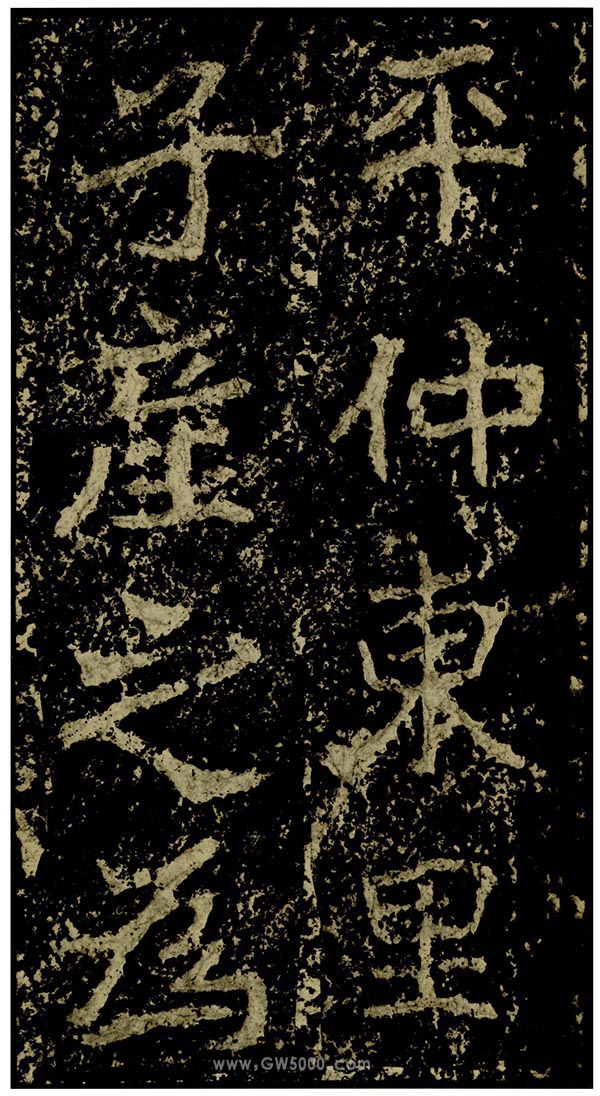 平仲東里
子產之為
www.GW5000.com